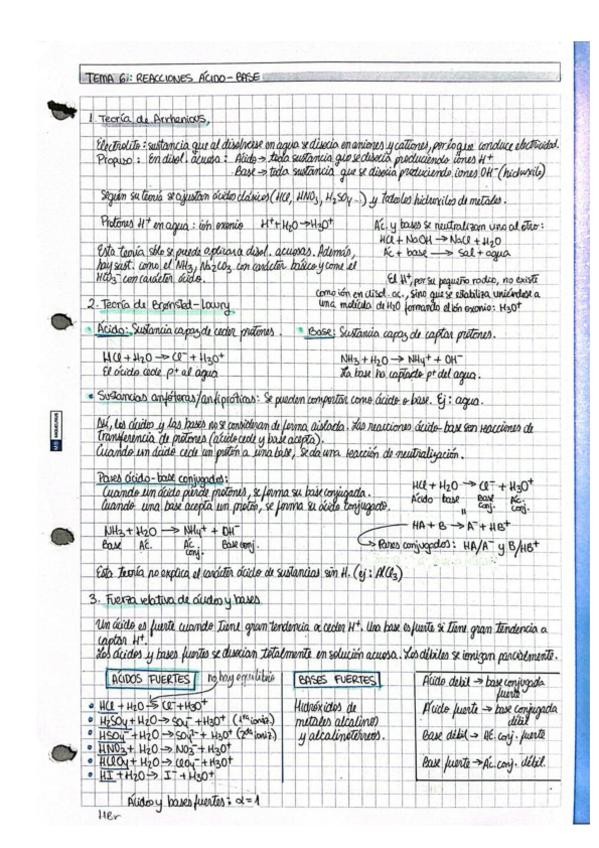 TEMA 6i: REACCIONES ÁCIDO-BASE
1. Teoría de Arrhenious,
Electrolito: sustancia que al disolverse en agua se disocia en aniones y cationes, por lo que conduce electricidad.
Propuso: En disol. acuosa: Ácido → toda sustancia que se disocia produciendo iones H⁺
Base → toda sustancia que se disocia produciendo iones OH⁻ (hidroxilo)
Según su teoría se ajustan ácidos clásicos (HCl, HNO₃, H₂SO₄...) y todos los hidróxilos de metales.
Protones H⁺ en agua: ión oxonio H⁺ + H₂O → H₃O⁺
Ác. y bases se neutralizan uno al otro:
HCl + NaOH → NaCl + H₂O
Ác + base → sal + agua
Esta teoría sólo se puede aplicar a disol. acuosas. Además,
hay sust. como el NH₃, Na₂CO₃ con carácter básico y como el
HCO₃⁻ con carácter ácido.
El H⁺, por su pequeño radio, no existe
como ión en disol. ac., sino que se estabiliza uniéndose a
una molécula de H₂O formando el ión oxonio: H₃O⁺
2. Teoría de Brønsted-Lowry
Ácido: Sustancia capaz de ceder protones.
Base: Sustancia capaz de captar protones.
HCl + H₂O → Cl⁻ + H₃O⁺
El ácido cede p⁺ al agua
NH₃ + H₂O → NH₄⁺ + OH⁻
La base ha captado p⁺ del agua.
Sustancias anfóteras/anfipróticas: Se pueden comportar como ácido o base. Ej: agua.
Así, los ácidos y las bases no se consideran de forma aislada. Las reacciones ácido-base son reacciones de
transferencia de protones (ácido cede y base acepta).
Cuando un ácido cede un protón a una base, se da una reacción de neutralización.
Pares ácido-base conjugados:
Cuando un ácido pierde protones, se forma su base conjugada.
Cuando una base acepta un protón, se forma su ácido conjugado.
HCl + H₂O → Cl⁻ + H₃O⁺
Ácido base Base conj. Ác. conj.
HA + B → A⁻ + HB⁺
NH₃ + H₂O → NH₄⁺ + OH⁻
Base Ác. Ác. conj. Base conj.
Pares conjugados: HA/A⁻ y B/HB⁺
Esta teoría no explica el carácter ácido de sustancias sin H. (ej: AlCl₃)
3. Fuerza relativa de ácidos y bases
Un ácido es fuerte cuando tiene gran tendencia a ceder H⁺. Una base es fuerte si tiene gran tendencia a
captar H⁺.
Los ácidos y bases fuertes se disocian totalmente en solución acuosa. Los débiles se ionizan parcialmente.
ÁCIDOS FUERTES no hay equilibrio
HCl + H₂O ⇆ Cl⁻ + H₃O⁺
H₂SO₄ + H₂O → SO₄⁻ + H₃O⁺ (1ª ioniz.)
HSO₄⁻ + H₂O → SO₄²⁻ + H₃O⁺ (2ª ioniz)
HNO₃ + H₂O → NO₃⁻ + H₃O⁺
HClO₄ + H₂O → ClO₄⁻ + H₃O⁺
HI + H₂O → I⁻ + H₃O⁺
BASES FUERTES
Hidróxidos de
metales alcalinos
y alcalinotérreos.
Ácido débil → base conjugada
fuerte
Ácido fuerte → base conjugada
débil
Base débil → Ác. conj. fuerte
Base fuerte → Ác. conj. débil.
Ácidos y bases fuertes: α = 1
HBr